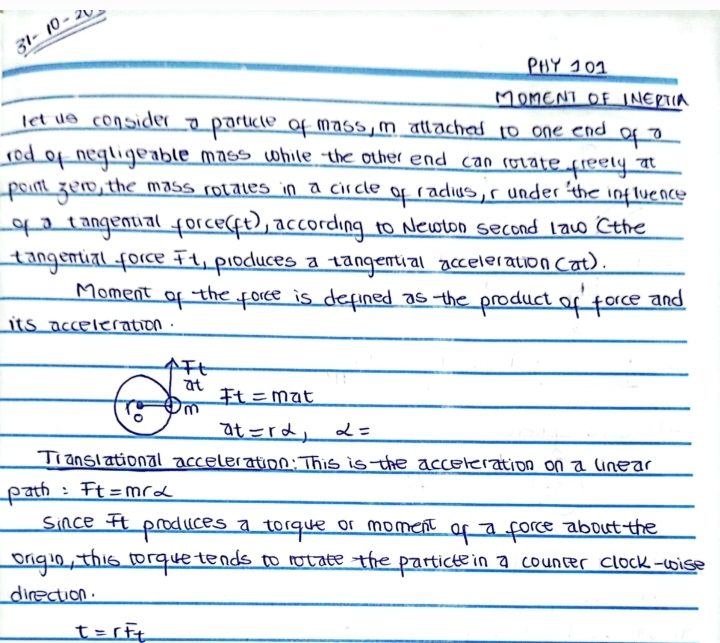 31-10-20
PHY 101
MOMENT OF INERTIA
let us consider a particle of mass, m attached to one end of a
rod of negligeable mass while the other end can rotate freely at
point zero, the mass rotates in a circle of radius, r under the influence
of a tangential force(ft), according to Newton second law (the
tangential force Ft, produces a tangential acceleration (at).
Moment of the force is defined as the product of force and
its acceleration.
Ft
at
r o m Ft = mat
at = rα, α =
Translational acceleration: This is the acceleration on a linear
path : Ft = mrα
Since Ft produces a torque or moment of a force about the
origin, this torque tends to rotate the particle in a counter clock-wise
direction.
t = rFt